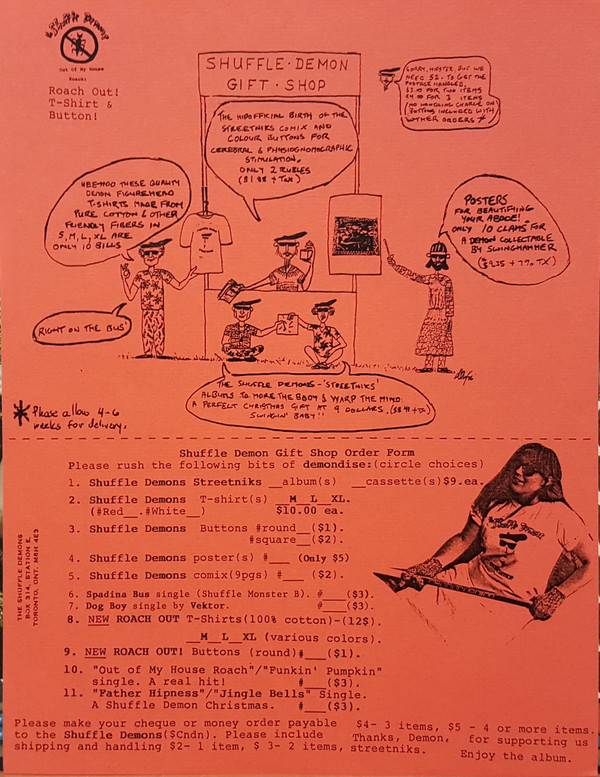 Shuffle Demons
Out of My House
Roach!
Roach Out!
T-Shirt &
Button!
SHUFFLE·DEMON
GIFT·SHOP
SORRY, HIPSTER, BUT WE
NEED $2. TO GET THE
POSTAGE HANDLED,
$3.00 FOR TWO ITEMS
$4.00 FOR 3 ITEMS
(NO HANDLING CHARGE ON
BUTTONS INCLUDED WITH
OTHER ORDERS *
THE HIPOFFICIAL BIRTH OF THE
STREETNIKS COMIX AND
COLOUR BUTTONS FOR
CEREBRAL & PHYSIOGNOMOGRAPHIC
STIMULATION.
ONLY 2 RUBLES
($1.88 + TAX)
THESE QUALITY
DEMON FIGUREHEAD
T-SHIRTS MADE FROM
PURE COTTON & OTHER
FRIENDLY FIBERS IN
S, M, L, XL ARE
ONLY 10 BILLS
POSTERS
FOR BEAUTIFYING
YOUR ABODE!
ONLY 10 CLAMS FOR
A DEMON COLLECTABLE
BY SWINGHAMMER
($9.35 + 7% TX)
RIGHT ON THE BUS
THE SHUFFLE DEMONS - 'STREETNIKS'
ALBUMS TO MOVE THE BODY & WARP THE MIND.
A PERFECT CHRISTMAS GIFT AT 9 DOLLARS.
SWINGIN' BABY!!
* Please allow 4-6
weeks for delivery.
Shuffle Demon Gift Shop Order Form
Please rush the following bits of demondise:(circle choices)
1. Shuffle Demons Streetniks __album(s) __cassette(s)$9.ea.
2. Shuffle Demons T-shirt(s) __M__L__XL.
(#Red__.#White__) $10.00 ea.
3. Shuffle Demons Buttons #round__($1).
#square__($2).
4. Shuffle Demons poster(s) #___ (Only $5)
5. Shuffle Demons comix(9pgs) #___ ($2).
6. Spadina Bus single (Shuffle Monster B). #___($3).
7. Dog Boy single by Vektor. #___($3).
8. NEW ROACH OUT T-Shirts(100% cotton)-(12$).
__M__L__XL (various colors).
9. NEW ROACH OUT! Buttons (round)#___($1).
10. "Out of My House Roach"/"Funkin' Pumpkin"
single. A real hit! #___($3).
11. "Father Hipness"/"Jingle Bells" Single.
A Shuffle Demon Christmas. #___($3).
THE SHUFFLE DEMONS
BOX 314, STATION E,
TORONTO, ONT. M6H 4E3
Shuffle Demons
Please make your cheque or money order payable
to the Shuffle Demons($Cndn). Please include
shipping and handling $2- 1 item, $ 3- 2 items,
$4- 3 items, $5 - 4 or more items.
Thanks, Demon, for supporting us
streetniks.
Enjoy the album.